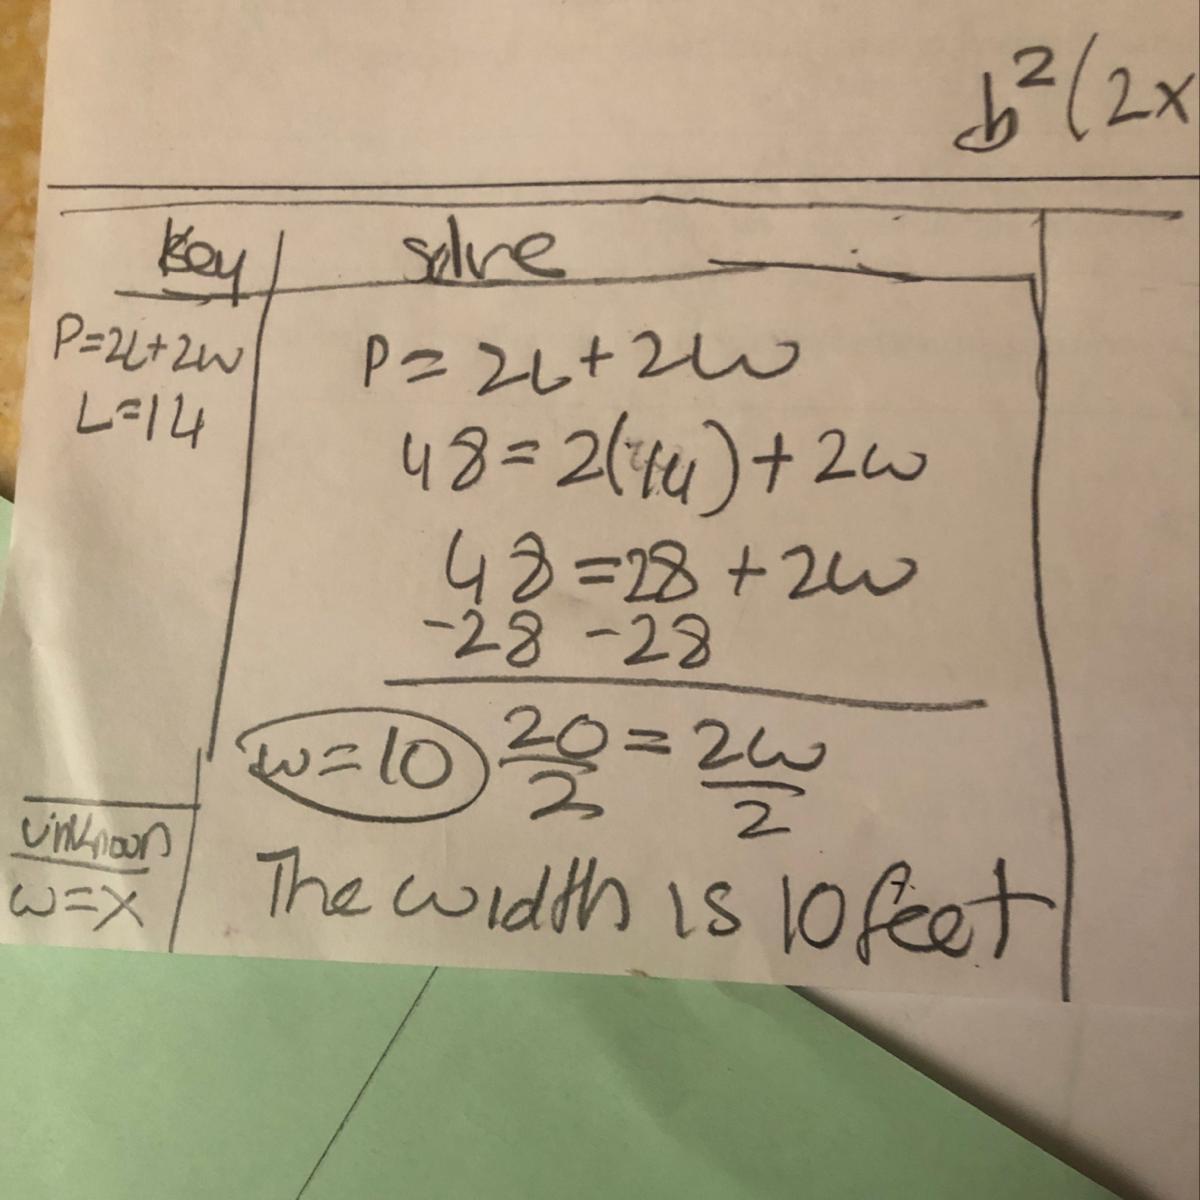 b²(2x
Key
P=2L+2w
L=14
unknown
w=x
solve
P=2L+2w
48=2(14)+2w
48=28+2w
-28 -28
w=10 20/2=2w/2
The width is 10 feet